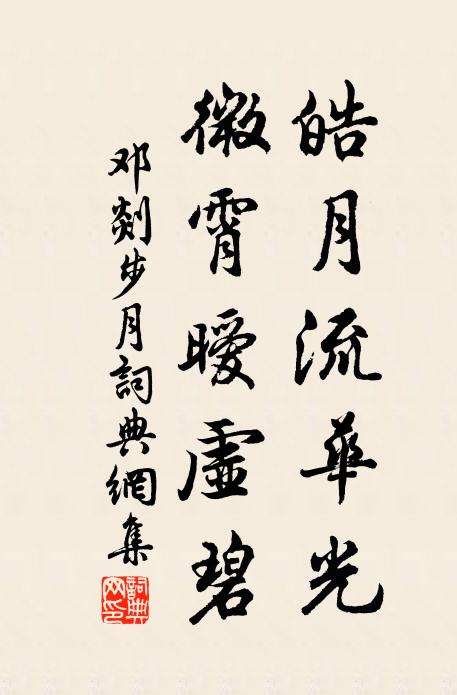 皓月流華光
微霄曖虛碧
邓剡步月詞典網集
詞典
网印